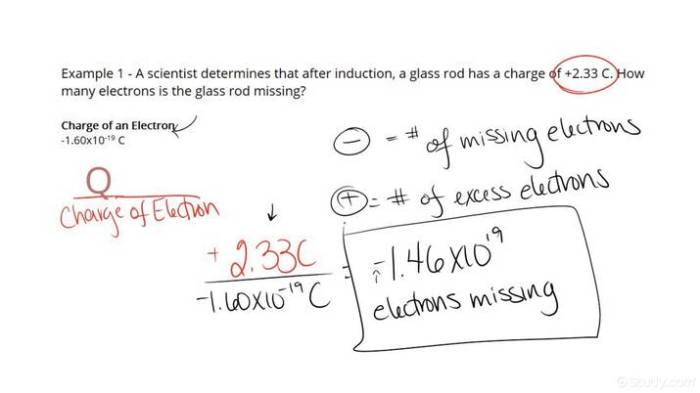 Example 1 - A scientist determines that after induction, a glass rod has a charge of +2.33 C. How
many electrons is the glass rod missing?
Charge of an Electron
-1.60x10⁻¹⁹ C
⊖ = # of missing electrons
⊕ = # of excess electrons
Q
Charge of Electron
+ 2.33C
-1.60X10⁻¹⁹ C
= -1.46X10¹⁹
electrons missing
Study.com